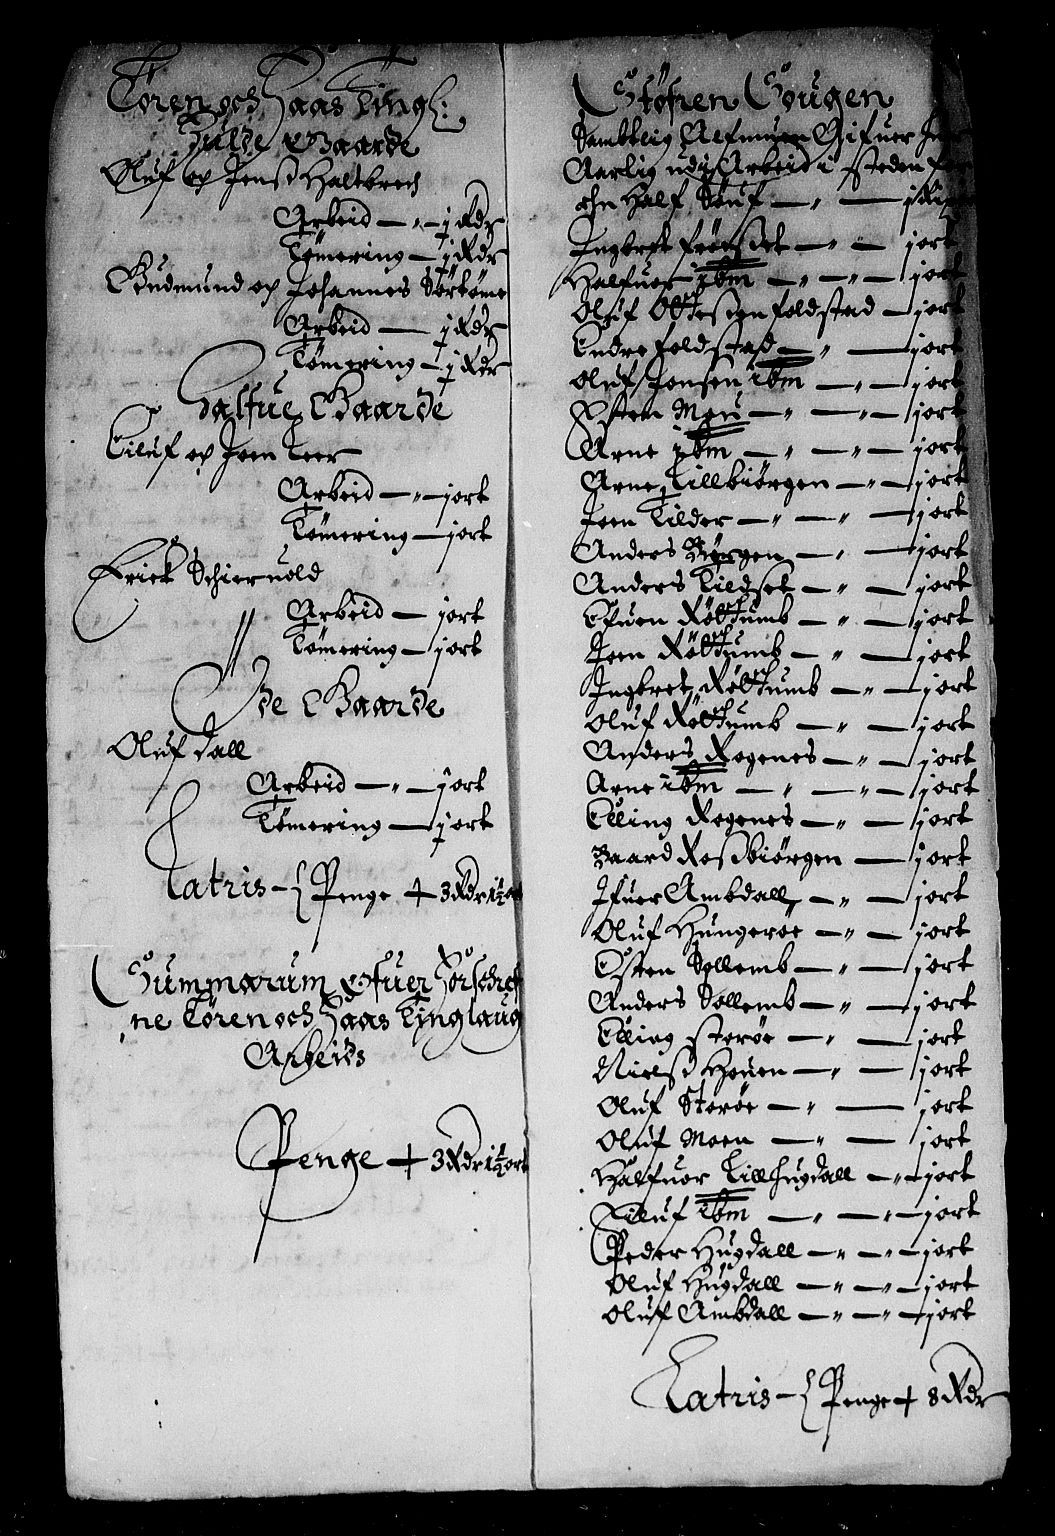 Tøren och Haas Tingl:
Fulde Gaarde
Oluf og Jenss Haltbrech
Arbeid — " — j Rdr
Tømering — j Rdr
Gudmund og Johannes Sørtøme
Arbeid — j Rdr
Tømering — j Rdr
Halfue Gaarde
Eiluf og Joen Leer
Arbeid — " — jort
Tømering — jort
Erick Schieruold
Arbeid — jort
Tømering — jort
Øde Gaarde
Oluf Dall
Arbeid — " — jort
Tømering — jort
Latris — { Penge + 3 Rdr 1½ ort
Summarum Ofuer Forschref
ne Tøren och Haas Tinglaug
Arbeids
Penge + 3 Rdr 1½ ort
Støfren Sougen
Sambtlig Almuen Gifuer
Aarlig udj Arbeid i steden for
ehn Half Souf — " —
Ingbret — " — jort
Halfuor ibm — " — " — jort
Oluf Ottessen Foldstad — jort
Endre Foldstad — " — jort
Oluf Jonsen ibm — " — jort
Østen Mou — " — " — jort
Arne ibm — " — " — jort
Arne Lillbiørgen — " — jort
Joen Tilder — " — " — jort
Anders Børgen — " — jort
Anders Tildset — " — jort
Efuen Røttumb — " — jort
Joen Røttumb — " — jort
Ingbret Røttumb — " — jort
Oluf Røttumb — " — jort
Anders Rogenes — " — jort
Arne ibm — " — " — jort
Elling Rogenes — " — jort
Baard Rossbiørgen — jort
Ifuer Ambdall — " — jort
Oluf Hungeroe — " — jort
Østen Sollemb — " — jort
Anders Sollemb — " — jort
Elling Storøe — " — jort
Nielss Houen — " — jort
Oluf Storøe — " — jort
Oluf Moen — " — jort
Halfuor Lillhugdall — " — jort
Eiluf ibm — " — " — jort
Peder Hugdall — " — " — jort
Oluf Hugdall — " — " — jort
Oluf Ambdall — " — " — jort
Latris — { Penge + 8 Rdr